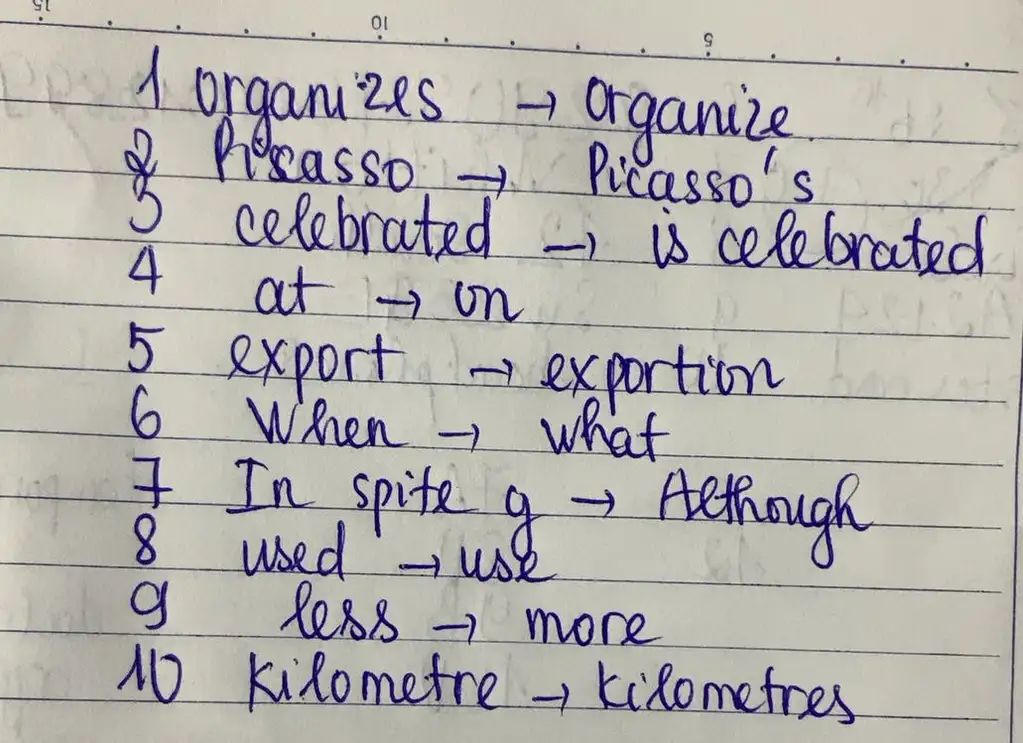 15 10 5
1 organizes → organize
2 Picasso → Picasso's
3 celebrated → is celebrated
4 at → on
5 export → exportion
6 When → what
7 In spite of → Although
8 used → use
9 less → more
10 kilometre → kilometres